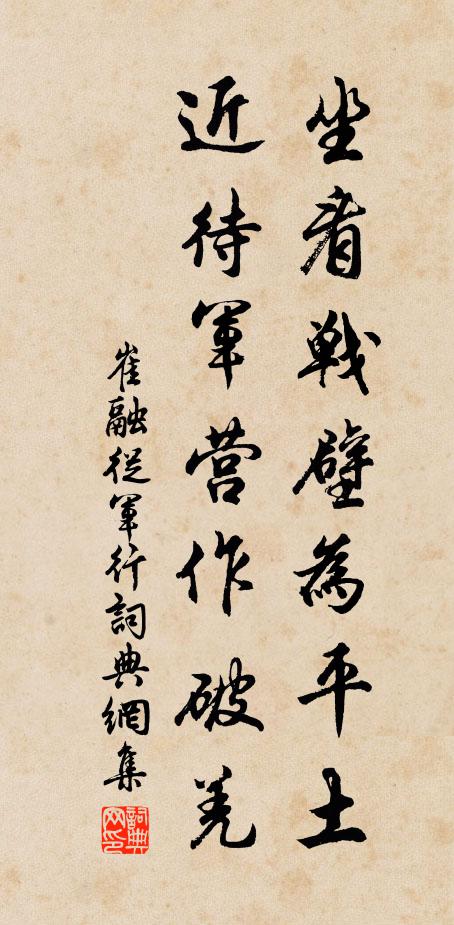 坐看戰壁為平土
近待軍營作破羌
崔融從軍行詞典網集
詞典
网印